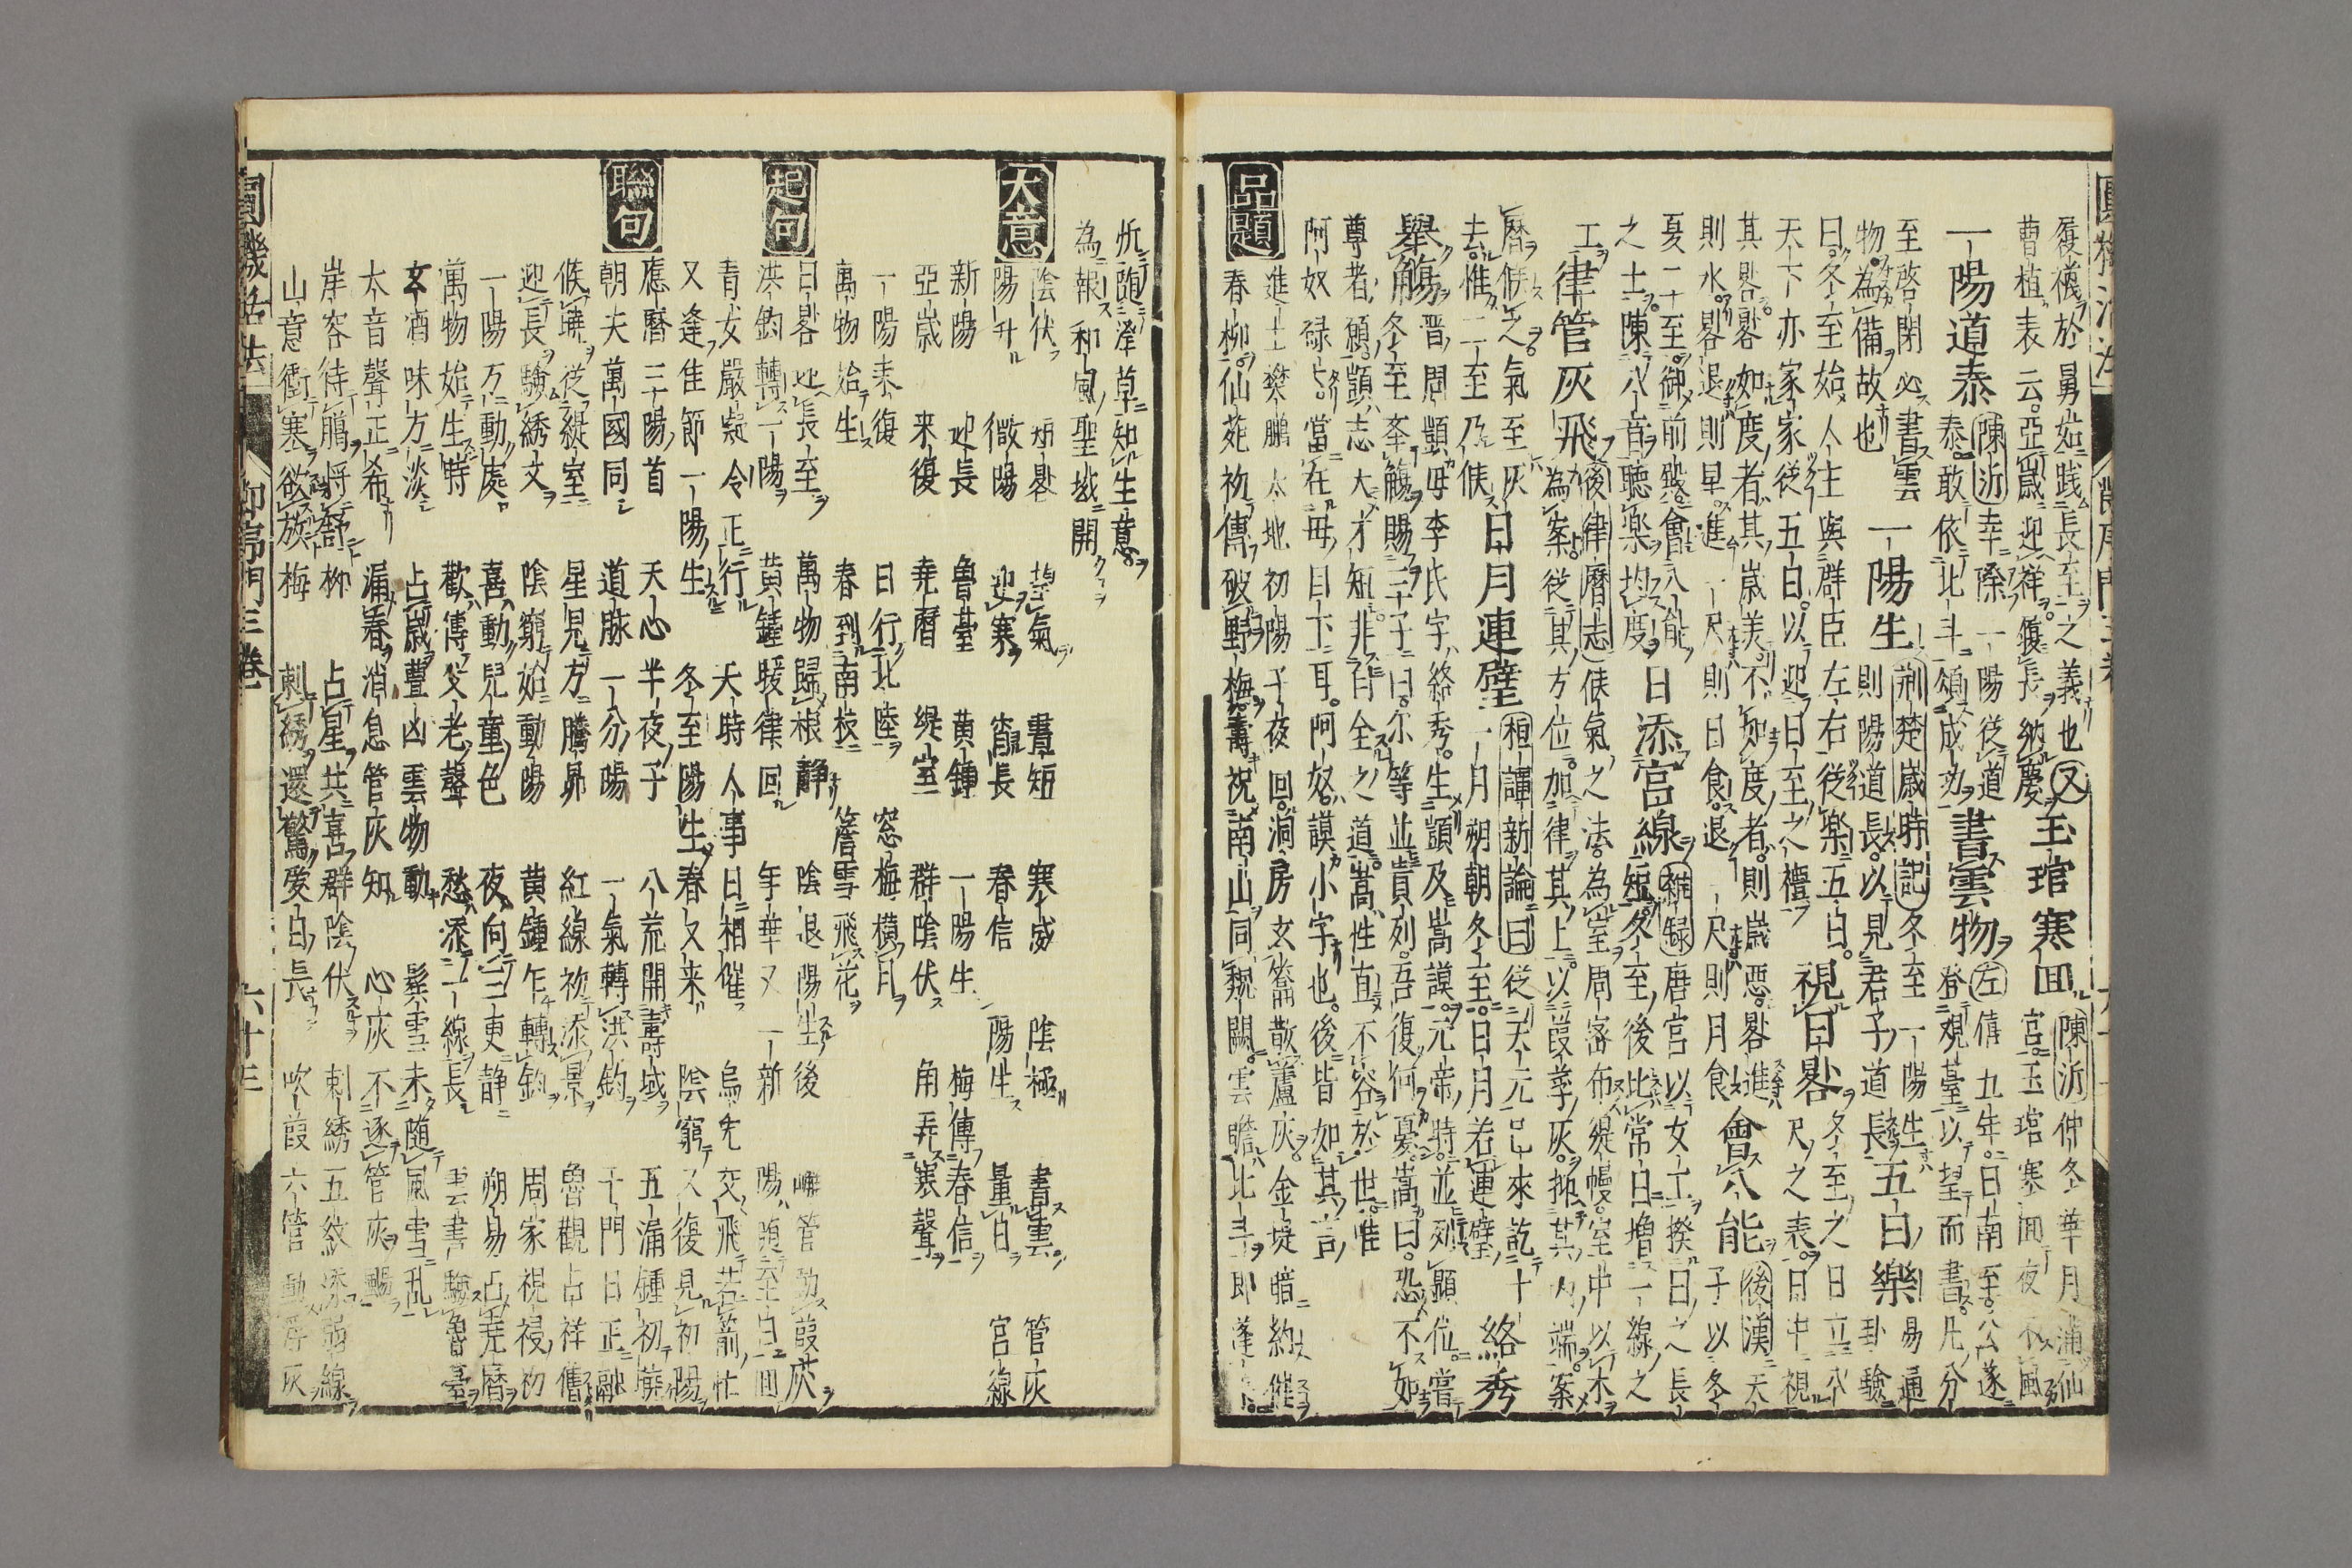 履襪於舅姑踐長至之義也又玉琯寒回陳沂仲冬華月滿仙
曹植表云亞歲迎祥履長納慶宮玉琯寒回夜不風
一陽道泰陳沂幸際一陽從道書雲物左僖九年曰南至公遂
泰敢依北斗頌成功登觀臺以望而書凡分
至啓閉必書雲一陽生荊楚歲時記冬至一陽生五日樂易通
物為備故也則陽道長以見君子道長卦驗
曰冬至始人主與群臣左右從樂五日視日晷冬至之日立八
天下亦家家從五日以迎日至之禮尺之表日中視
其晷晷如度者其歲美不如度者則歲惡晷進會八能後漢天
則水晷退則旱進一尺則日食退一尺則月食子以冬
夏二至御前殿會八能日添宮線雜録唐宮以女工揆日之長
之士陳八音聽樂均度短冬至後比常日增一線之
工律管灰飛後律曆志候氣之法為室周密布緹幔室中以木
為案從其方位加律其上以葭莩灰抑其內端案
曆候之氣至灰日月連璧桓譚新論曰從天元已來訖十絡秀
去惟二至乃候一月朔朝冬至日月若連璧
舉觴晋周顗母李氏字絡秀生顗及嵩謨元帝時並列顯位嘗
冬至舉觴賜三子曰尔等並貴列吾復何憂嵩曰恐不如
尊者願顗志大才短非自全之道嵩性直不容於世惟
阿奴碌碌當在母目下耳阿奴謨小字也後皆如其言
品題進士樊鵬太地初陽子夜回洞房玄籥散蘆灰金堤暗約催
春柳仙苑初傳破野梅壽祝南山同魏闕雲瞻北斗即蓬
隨澤草知生意
為報和風聖域開
大意陰伏短晷望氣晝短寒威陰極書雲管灰
陽升微陽迎寒宵長春信陽生量日宮線
新陽迎長魯臺黄鍾一陽生梅傳春信
亞歲来復堯曆緹室群陰伏角弄寒聲
一陽来復日行北陸窓梅橫月
萬物始生春到南枝簷雪飛花
起句日晷迎長至萬物歸根静陰退陽生後嶰管動葭灰
洪鈞轉一陽黄鍾暖律回年華又一新陽隨至日回
青女嚴凝令正行天時人事日相催烏兔交飛若箭忙
又逢佳節一陽生冬至陽生春又来陰窮又復見初陽
應曆三陽首天心半夜子八荒開壽域五漏鍾初曉
聯句朝天萬國同道脉一分陽一氣轉洪鈞千門日正融
候曉從緹室星見方騰昴紅線初添景魯觀占祥舊
迎長驗綉文陰窮始動陽黄鍾乍轉鈞周家視祲初
一陽万動處喜動兒童色夜向三更静朔易占堯曆
萬物始生時歡傳父老聲愁添一線長雲書驗魯臺
玄酒味方淡占歲豐凶雲物動鬂雪未隨風雪乱
太音聲正希漏春消息管灰知心灰不逐管灰颺
岸容待臘將舒柳占星共喜群陰伏刺綉五紋添弱線
山意衝寒欲放梅刺綉還驚愛日長吹葭六管動浮灰
圓機活法
節序門三卷
六十三